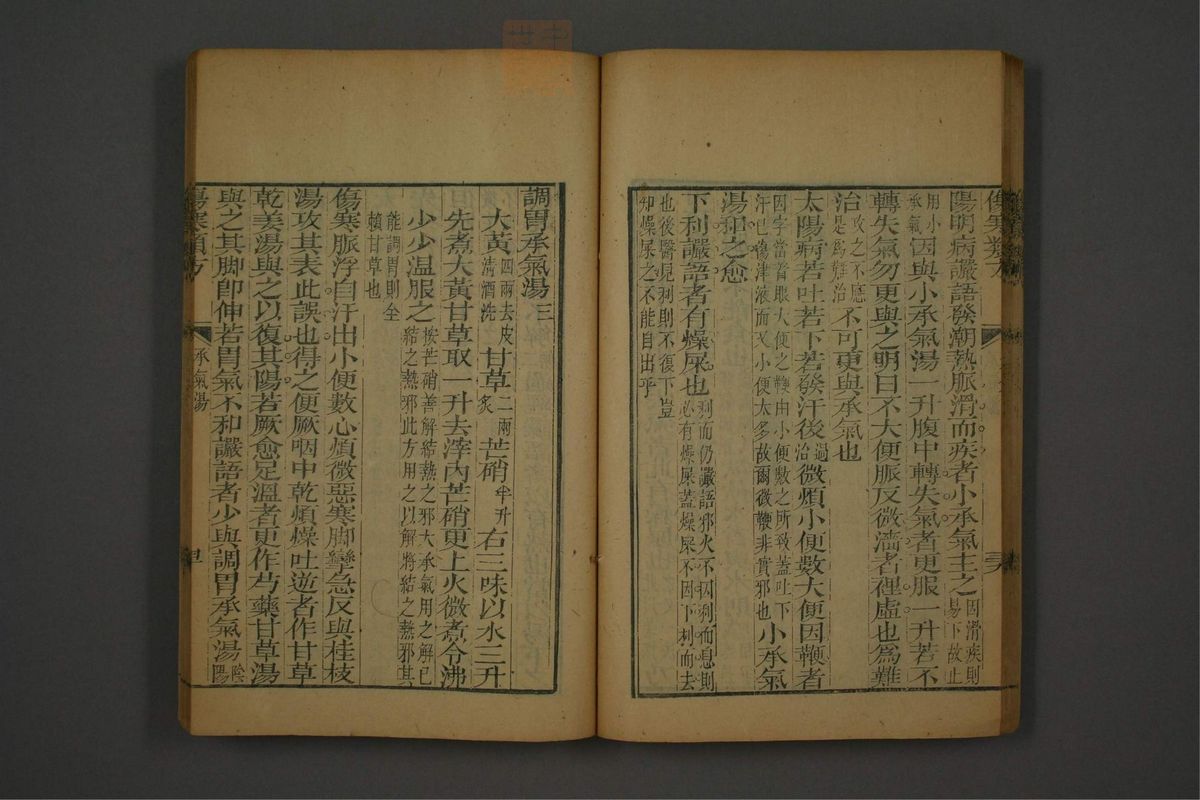 傷寒類方
陽明病讝語發潮熱脈滑而疾者小承氣主之因滑疾則易下故止
用小承氣因與小承氣湯一升腹中轉失氣者更服一升若不
轉失氣勿更與之明日不大便脈反微濇者裡虛也為難
治攻之不應是為難治不可更與承氣也
太陽病若吐若下若發汗後過治微煩小便數大便因鞕者
因字當着眼大便之鞕由小便數之所致蓋吐下汗已傷津液而又小便太多故爾微鞕非實邪也小承氣
湯和之愈
下利讝語者有燥屎也利而仍讝語邪火不因利而息則必有燥屎蓋燥屎不因下利而去
也後醫見利則不復下豈知燥屎之不能自出乎
調胃承氣湯三
大黃四兩去皮清酒洗甘草二兩炙芒硝半升右三味以水三升
先煮大黃甘草取一升去滓內芒硝更上火微煮令沸
少少溫服之按芒硝善解結熱之邪大承氣用之解已結之熱邪此方用之以解將結之熱邪其
能調胃則全賴甘草也
傷寒脈浮自汗出小便數心煩微惡寒脚攣急反與桂枝
湯攻其表此誤也得之便厥咽中乾煩燥吐逆者作甘草
乾姜湯與之以復其陽若厥愈足溫者更作芍藥甘草湯
與之其脚即伸若胃氣不和讝語者少與調胃承氣湯陰陽
傷寒類方
承氣湯